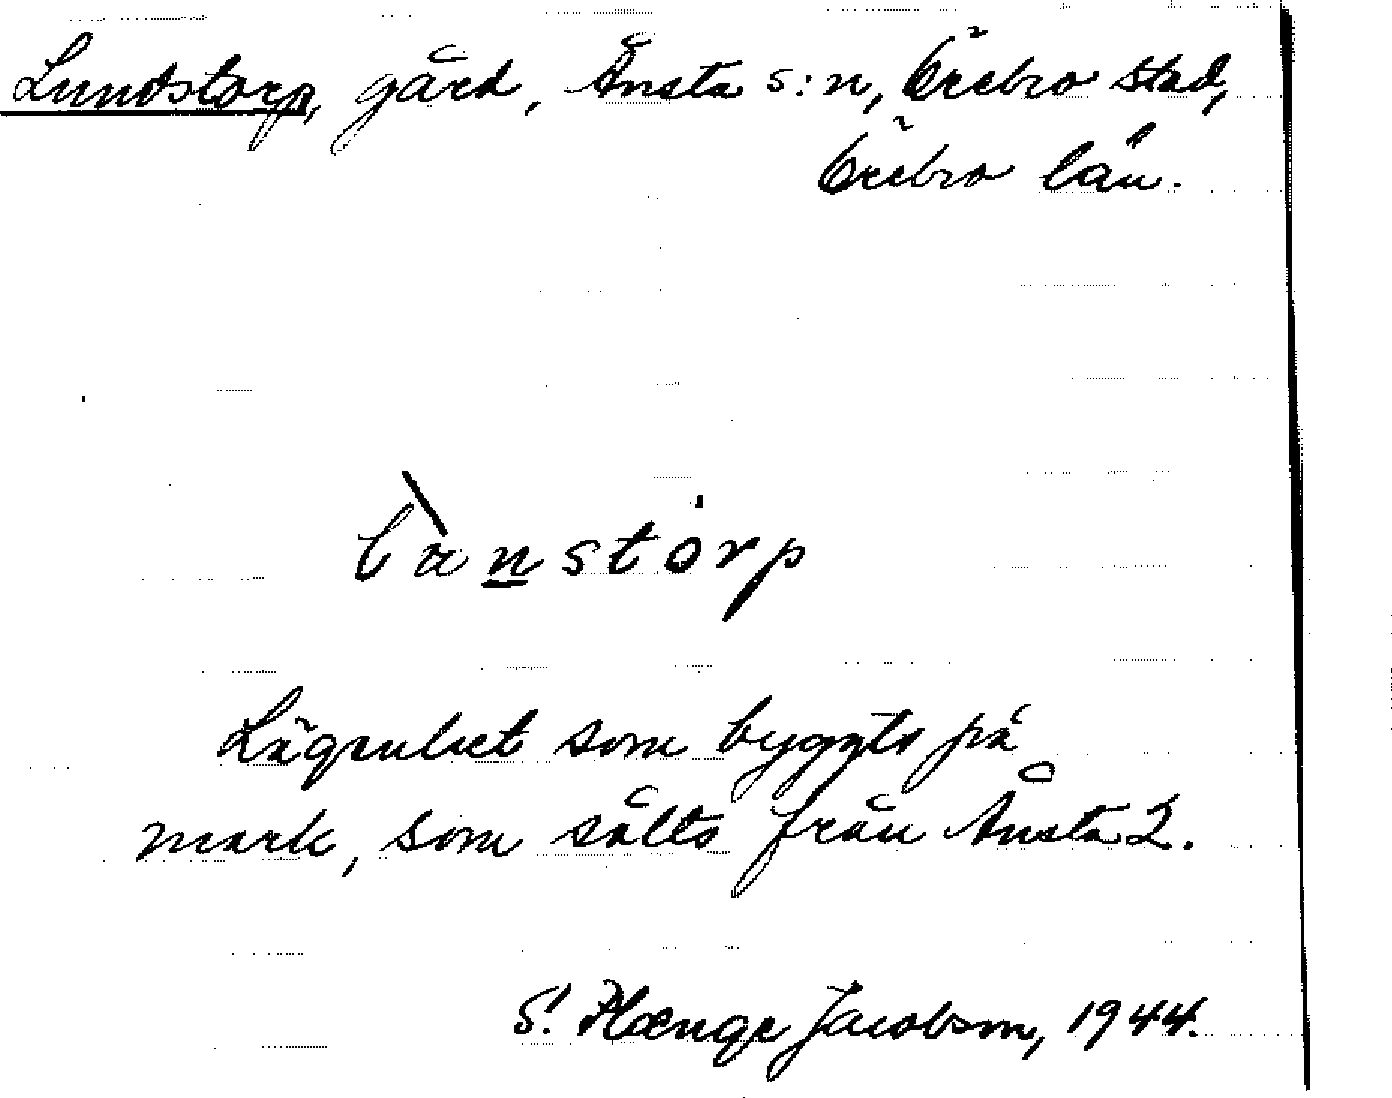 Lundstorp, gård, Ånsta s:n, Örebro stad,
Örebro län.
lànstȯrp
Lägenhet som byggts på
mark, som sålts från Ånsta 2.
S. Hænge Jacobson, 1944.